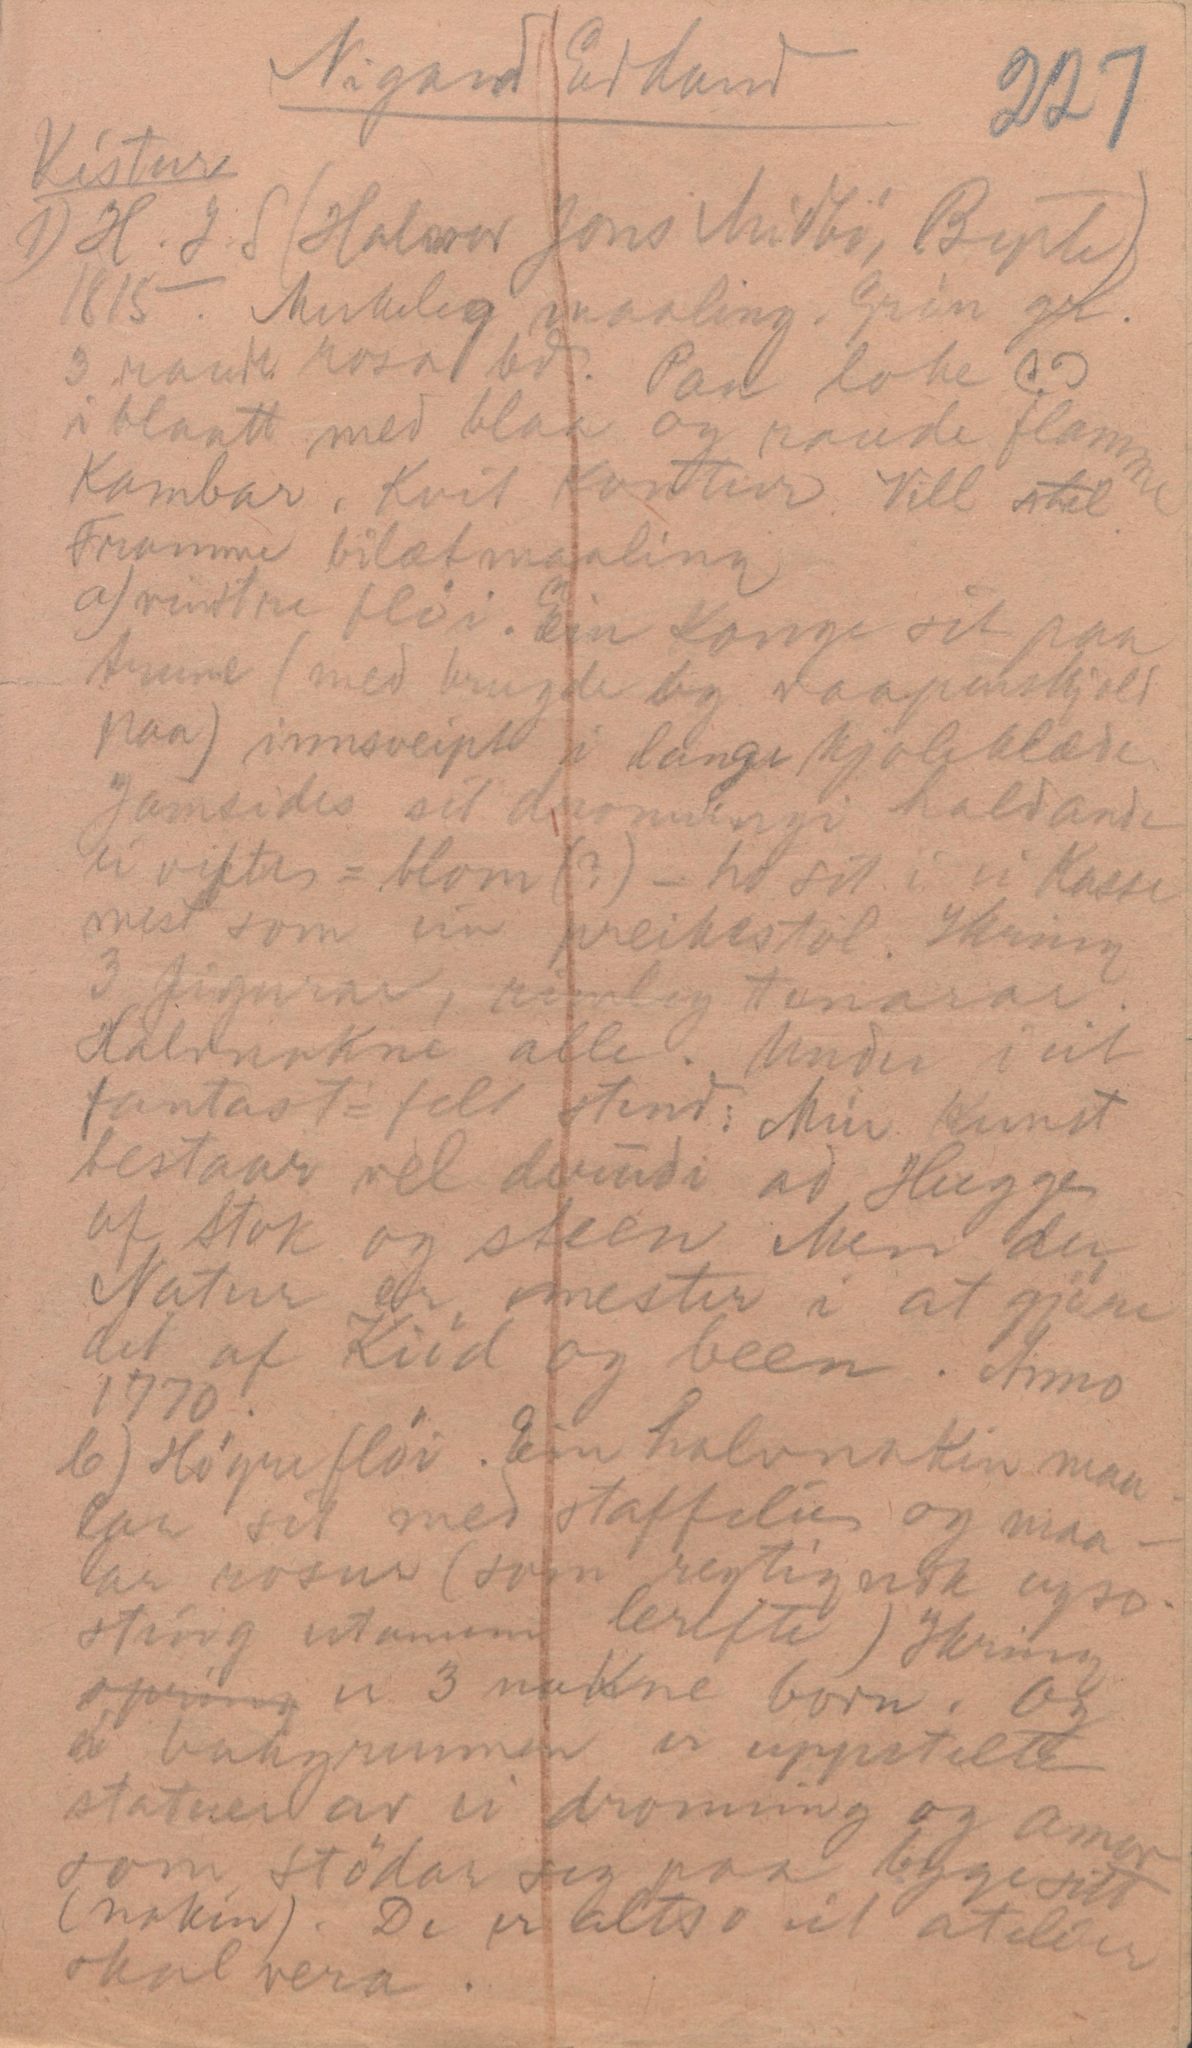 Nigard Edland
227
Kistur
1) H. J. S (Halvor Jons Midbö, Bepte)
1815. Merkeleg maaling. Grön gr.
3 raude rosa bd. Paa loke
i blaatt med blaa og raude flamme
Kambar. Kvit Kontur. Vill stil.
Framme bilætmaaling
a) vinstre flöi. Ein Konge sit paa
trune (med krugde og vaapenskjold
paa) innsveipt i lange kjoleklæde
Jamsides sit dronningi haldande
ei vifte = blom (?) – ho sit i ei Kasse
mest som ein preikestol. Ikring
3 figurar, rimeleg tenarar.
Halvnakne alle. Under i eit
fantast = felt stend: Min Kunst
bestaar vel derudi ad Hugge
af Stok og steen Men den
Natur er mester i at gjöre
det af Kiöd og been. Anno
1770.
b) Högre flöi. Ein halvnakin maa-
lar sit med staffelie og maa-
lar rosur (som regtignok ogso
utanum lerefte) Ikring
spring er 3 nakne born. Og
i bakgrunnen er uppstelte
statuer av ei dronning og amor
som stödar seg paa
(nakin). De er altso eit atelier
skal vera.